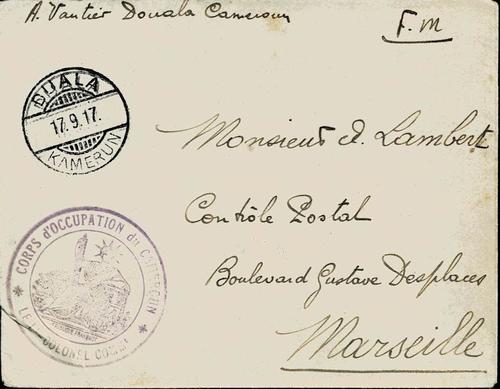 A. Vautier Douala Cameroun
F. M
DUALA
17.9.17.
KAMERUN
Monsieur A. Lambert
Contrôle Postal
Boulevard Gustave Desplaces
Marseille
CORPS d'OCCUPATION du CAMEROUN
COLONEL